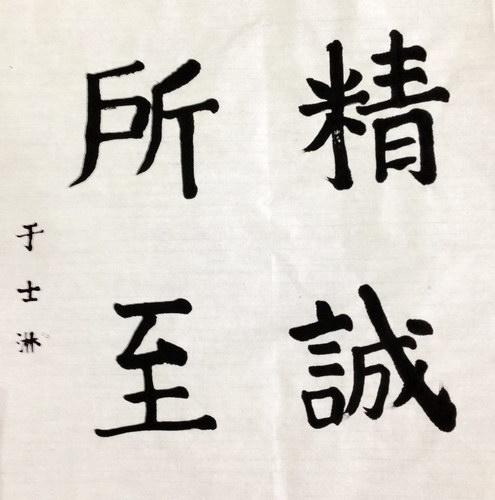 精誠
所至
于士淋